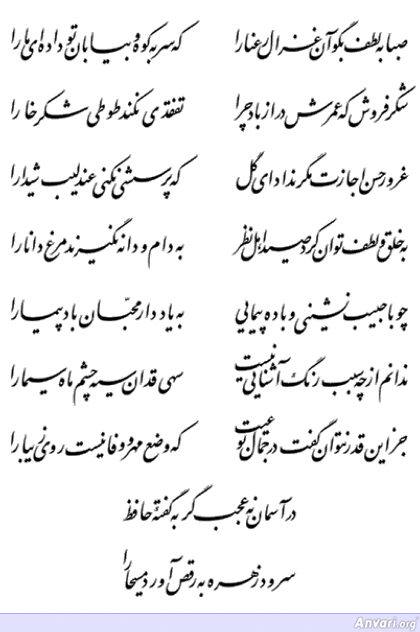 صبا به لطف بگو آن غزال رعنا را که سر به کوه و بیابان تو داده‌ای ما را
شکرفروش که عمرش دراز باد چرا تفقدی نکند طوطی شکرخا را
غرور حسن اجازت مگر نداد ای گل که پرسشی نکنی عندلیب شیدا را
به خلق و لطف توان کرد صید اهل نظر به دام و دانه نگیرند مرغ دانا را
چو با حبیب نشینی و باده پیمایی به یاد دار محبّان بادپیما را
ندانم از چه سبب رنگ آشنایی نیست سهی قدان سیه چشم ماه سیما را
جز این قدر نتوان گفت در جمال تو عیب که وضع مهر و وفا نیست روی زیبا را
در آسمان نه عجب گر به گفتهٔ حافظ
سرود زهره به رقص آورد مسیحا را
Anvari.org